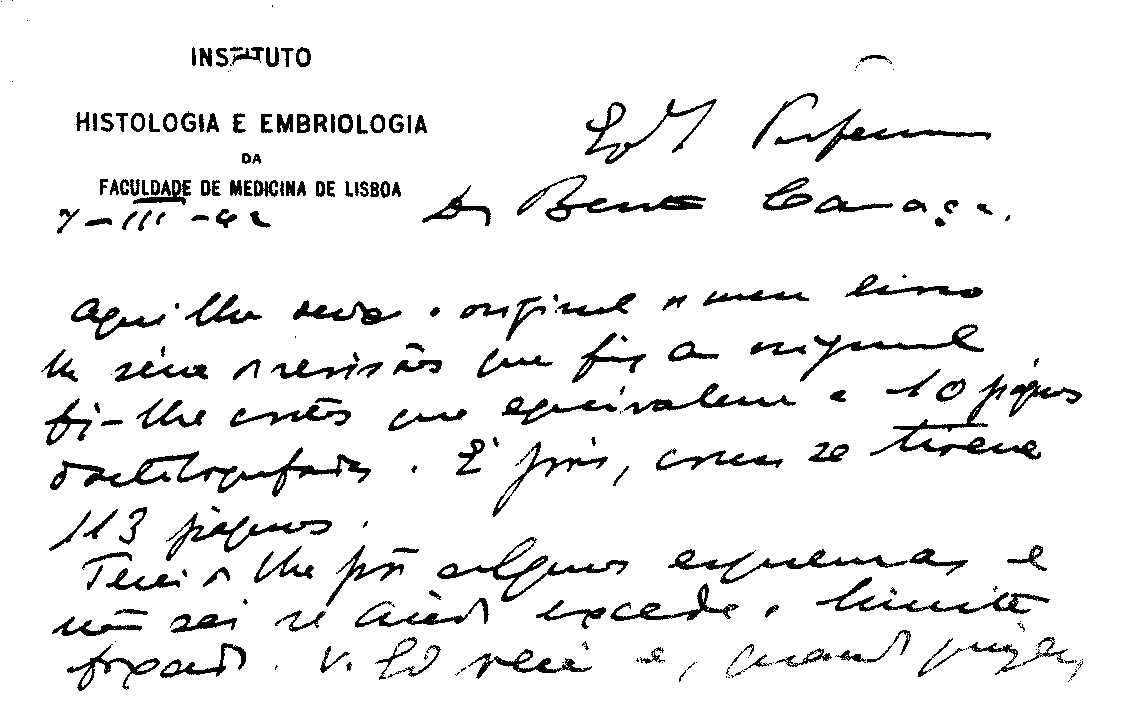 INSTITUTO
HISTOLOGIA E EMBRIOLOGIA
DA
FACULDADE DE MEDICINA DE LISBOA
7-III-42
Professor
Dr Bento Caraça.
Aqui lhe o original meu livro
revisão que fiz original
fiz-lhe cortes que equivalem a 10 páginas
dactilografadas. É pois, como se tivesse
113 páginas.
lhe pôr alguns esquemas e
não sei se ainda excede o limite
fixado. V. Exª verá e, quando